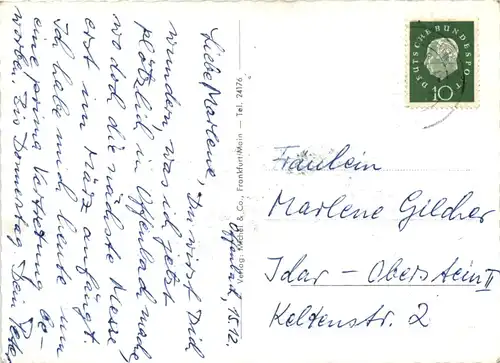 Offenbach, 15.12.
Liebe Marlene, Du wirst Dich
wundern, was ich jetzt
plötzlich in Offenbach mache,
wo doch die nächste Messe
erst im März anfängt.
Ich habe mich heute um
eine prima Vertretung be-
worben. Bis Donnerstag Dein Peter
Verlag: Michel & Co., Frankfurt/Main — Tel. 24176
DEUTSCHE BUNDESPOST
10
Fräulein
Marlene Gilcher
Idar-Oberstein II
Keltenstr. 2